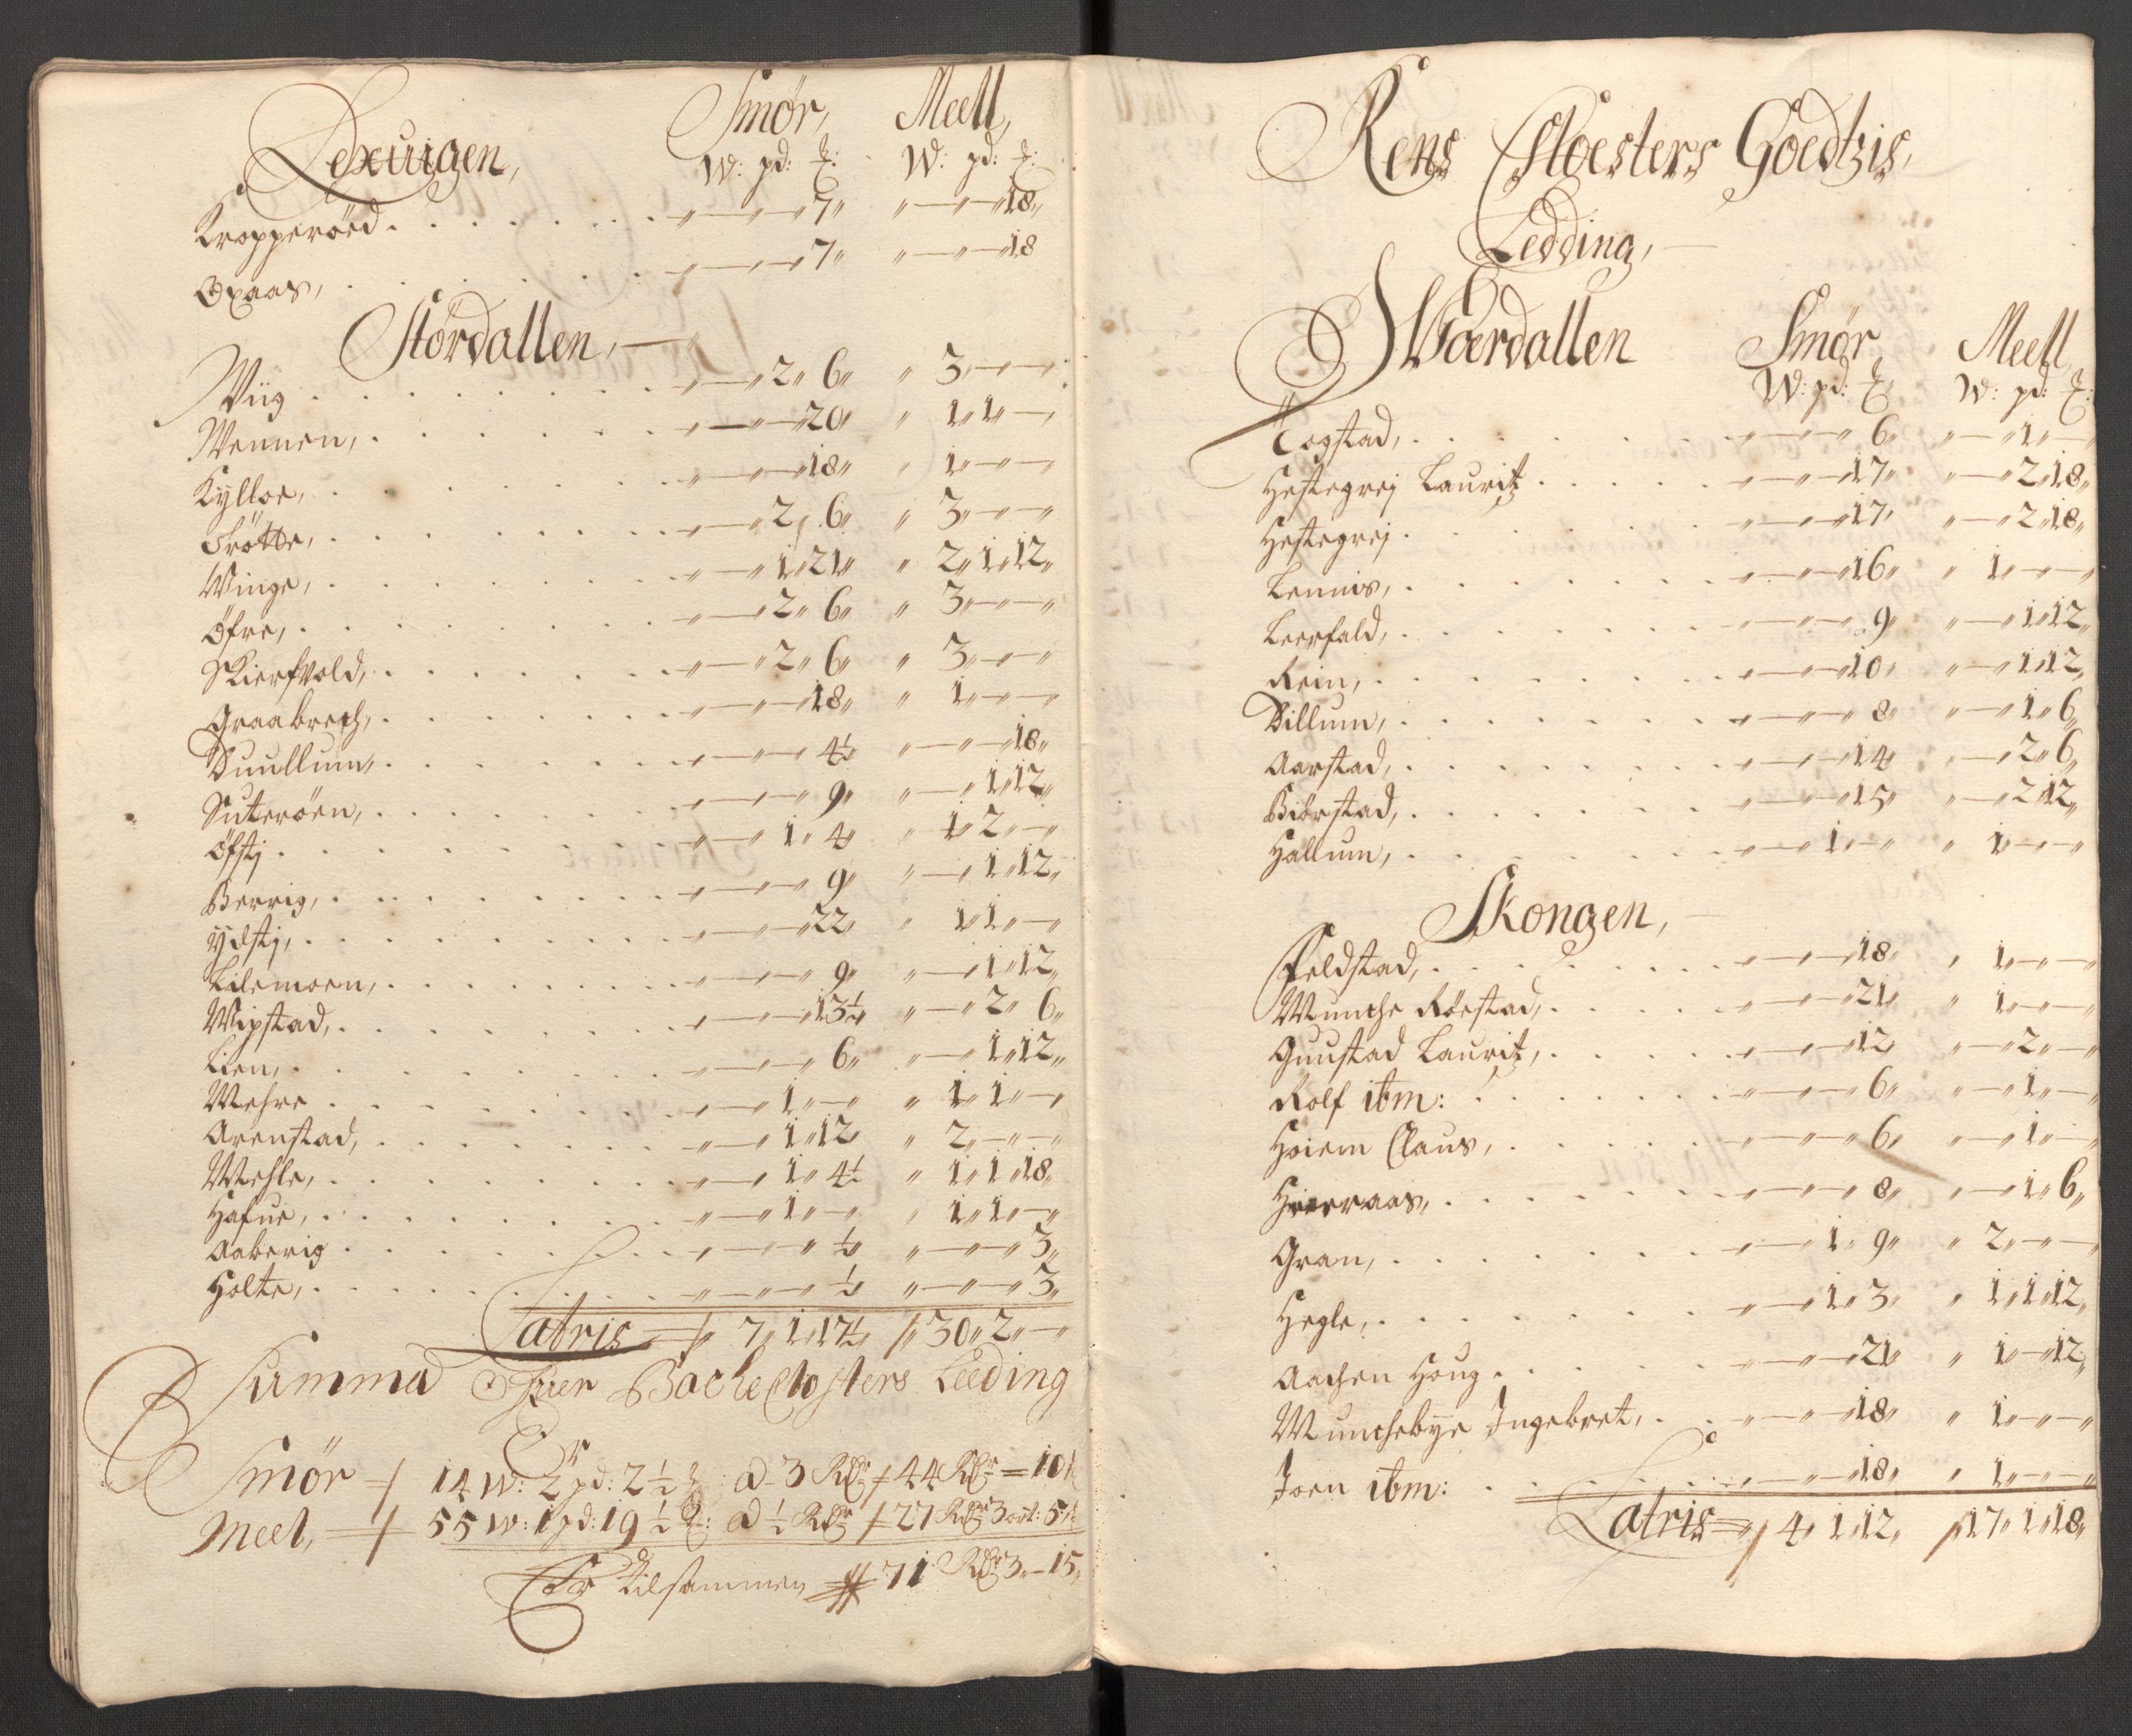 Lexuigen, Smör, Meell,
W: pd: ℔: W: pd: ℔:
Kropperöed . . . . . . „—„—„ 7„ „—„—„18„
Oxaas, . . . . . . „—„—„ 7„ „—„—„18
Stördallen,—
Wiig . . . . . . „—„2„ 6„ „ 3„—„—
Wennen, . . . . . . „—„—„20„ „ 1„1„—
Kylloe, . . . . . . „—„—„18„ „ 1„—„—
Trötte, . . . . . . „—„2„ 6„ „ 3„—„—
Winge, . . . . . . „—„1„21„ „ 2„1„12„
Öfre, . . . . . . „—„2„ 6„ „ 3„—„—
Skierfvold, . . . . . . „—„2„ 6„ „ 3„—„—
Graabrech, . . . . . . „—„—„18„ „ 1„—„—
Duullum, . . . . . . „—„—„ 4½ „—„—„18„
Suteröen, . . . . . . „—„—„ 9„ „—„1„12„
Öfstj . . . . . . „—„1„ 4„ „ 1„2„—
Berrig, . . . . . . „—„—„ 9„ „—„1„12„
Ydstj, . . . . . . „—„—„22„ „ 1„1„—
Lilemoen, . . . . . . „—„—„ 9„ „—„1„12„
Wipstad, . . . . . . „—„—„13½ „—„2„ 6„
Lien, . . . . . . „—„—„ 6„ „—„1„12„
Mehre . . . . . . „—„1„—„ „ 1„1„—
Arenstad, . . . . . . „—„1„12„ „ 2„—„—
Mehle, . . . . . . „—„1„ 4½ „ 1„1„18„
Hafue, . . . . . . „—„1„—„ „ 1„1„—
Aaberig . . . . . . „—„—„ ½„ „—„—„3„
Holte, . . . . . . „—„—„ ½ „—„—„3„
Latris 7„1„17½ 30„2„—
Summa Ofuer Bache Closters Leeding
Er
Smör 14 W: 2 pd: 2½ ℔: a 3 Rdr 44 Rdr = 10
Meel, 55 W: 1 pd: 19½ ℔: a ½ Rdr 27 Rdr 3 ort: 5
Er tilsammen 71 Rdr 3„—15„
Rens Closters Goedtzis,
Ledding,—
Woerdallen Smör Meell
W: pd: ℔ W: pd: ℔:
Togstad, . . . . . . „—„—„ 6„ „—„1„—
Hestegrej Lauritz . . . . . „—„—„17„ „—„2„18„
Hestegrej . . . . . . „—„—„17„ „—„2„18„
Lennis, . . . . . . „—„—„16„ „ 1„—„—
Leerfald, . . . . . . „—„—„ 9„ „—„1„12„
Rein, . . . . . . „—„—„10„ „—„1„12„
Dillum, . . . . . . „—„—„ 8„ „—„1„ 6„
Aarstad, . . . . . . „—„—„14„ „—„2„6„
Biörstad, . . . . . . „—„—„15„ „—„2„12„
Hallum, . . . . . . „—„1„—„ „ 1„—„—
Skongen,
Feldstad, . . . . . . „—„—„18„ „ 1„—„—
Munche Röestad, . . . . „—„—„21„ „ 1„—„—
Guustad Lauritz, . . . . „—„—„12„ „—„2„—
Rolf ibm: . . . . . . „—„—„ 6„ „—„1„—
Hoiem Claus, . . . . . „—„—„ 6„ „—„1„—
Hieraas, . . . . . . „—„—„ 8„ „—„1„6„
Gran, . . . . . . „—„1„ 9„ „ 2„—„—
Hegle, . . . . . . „—„1„ 3„ „ 1„1„12„
Aachen Houg . . . . . „—„—„21„ „ 1„—„12„
Munchebye Ingebret, . . „—„—„18„ „ 1„—„—
Joen ibm: . . . . . . „—„—„18„ „ 1„—„—
Latris 4„1„12„ 17„1„18„